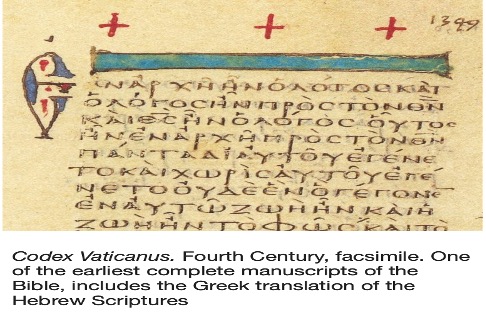 1349
ΕΝΑΡΧΗΗΝΟΛΟΓΟϹΚΑΙ
ΟΛΟΓΟϹΗΝΠΡΟϹΤΟΝΘΝ
ΚΑΙΘϹΗΝΟΛΟΓΟϹΟΥΤΟϹ
ΗΝΕΝΑΡΧΗΠΡΟϹΤΟΝΘΝ
ΠΑΝΤΑΔΙΑΥΤΟΥΕΓΕΝΕ
ΤΟΚΑΙΧΩΡΙϹΑΥΤΟΥΕΓΕ
ΝΕΤΟΟΥΔΕΕΝΟΓΕΓΟΝΕ
ΕΝΑΥΤΩΖΩΗΗΝΚΑΙΗ
ΖΩΗΗΝΤΟΦΩϹΚΑΙΤΟ
Codex Vaticanus. Fourth Century, facsimile. One
of the earliest complete manuscripts of the
Bible, includes the Greek translation of the
Hebrew Scriptures